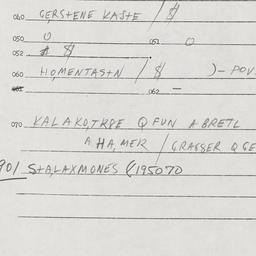 040 GERSTENE KASTE / $
050 O 051 O
052 $
060 HOMENTASTN / $ )- POV
062 —
070 KALAKO,TRPE Q FUN A BRETL
A HA,MER / GRASSER Q GE
901 STALAXMONES (195070